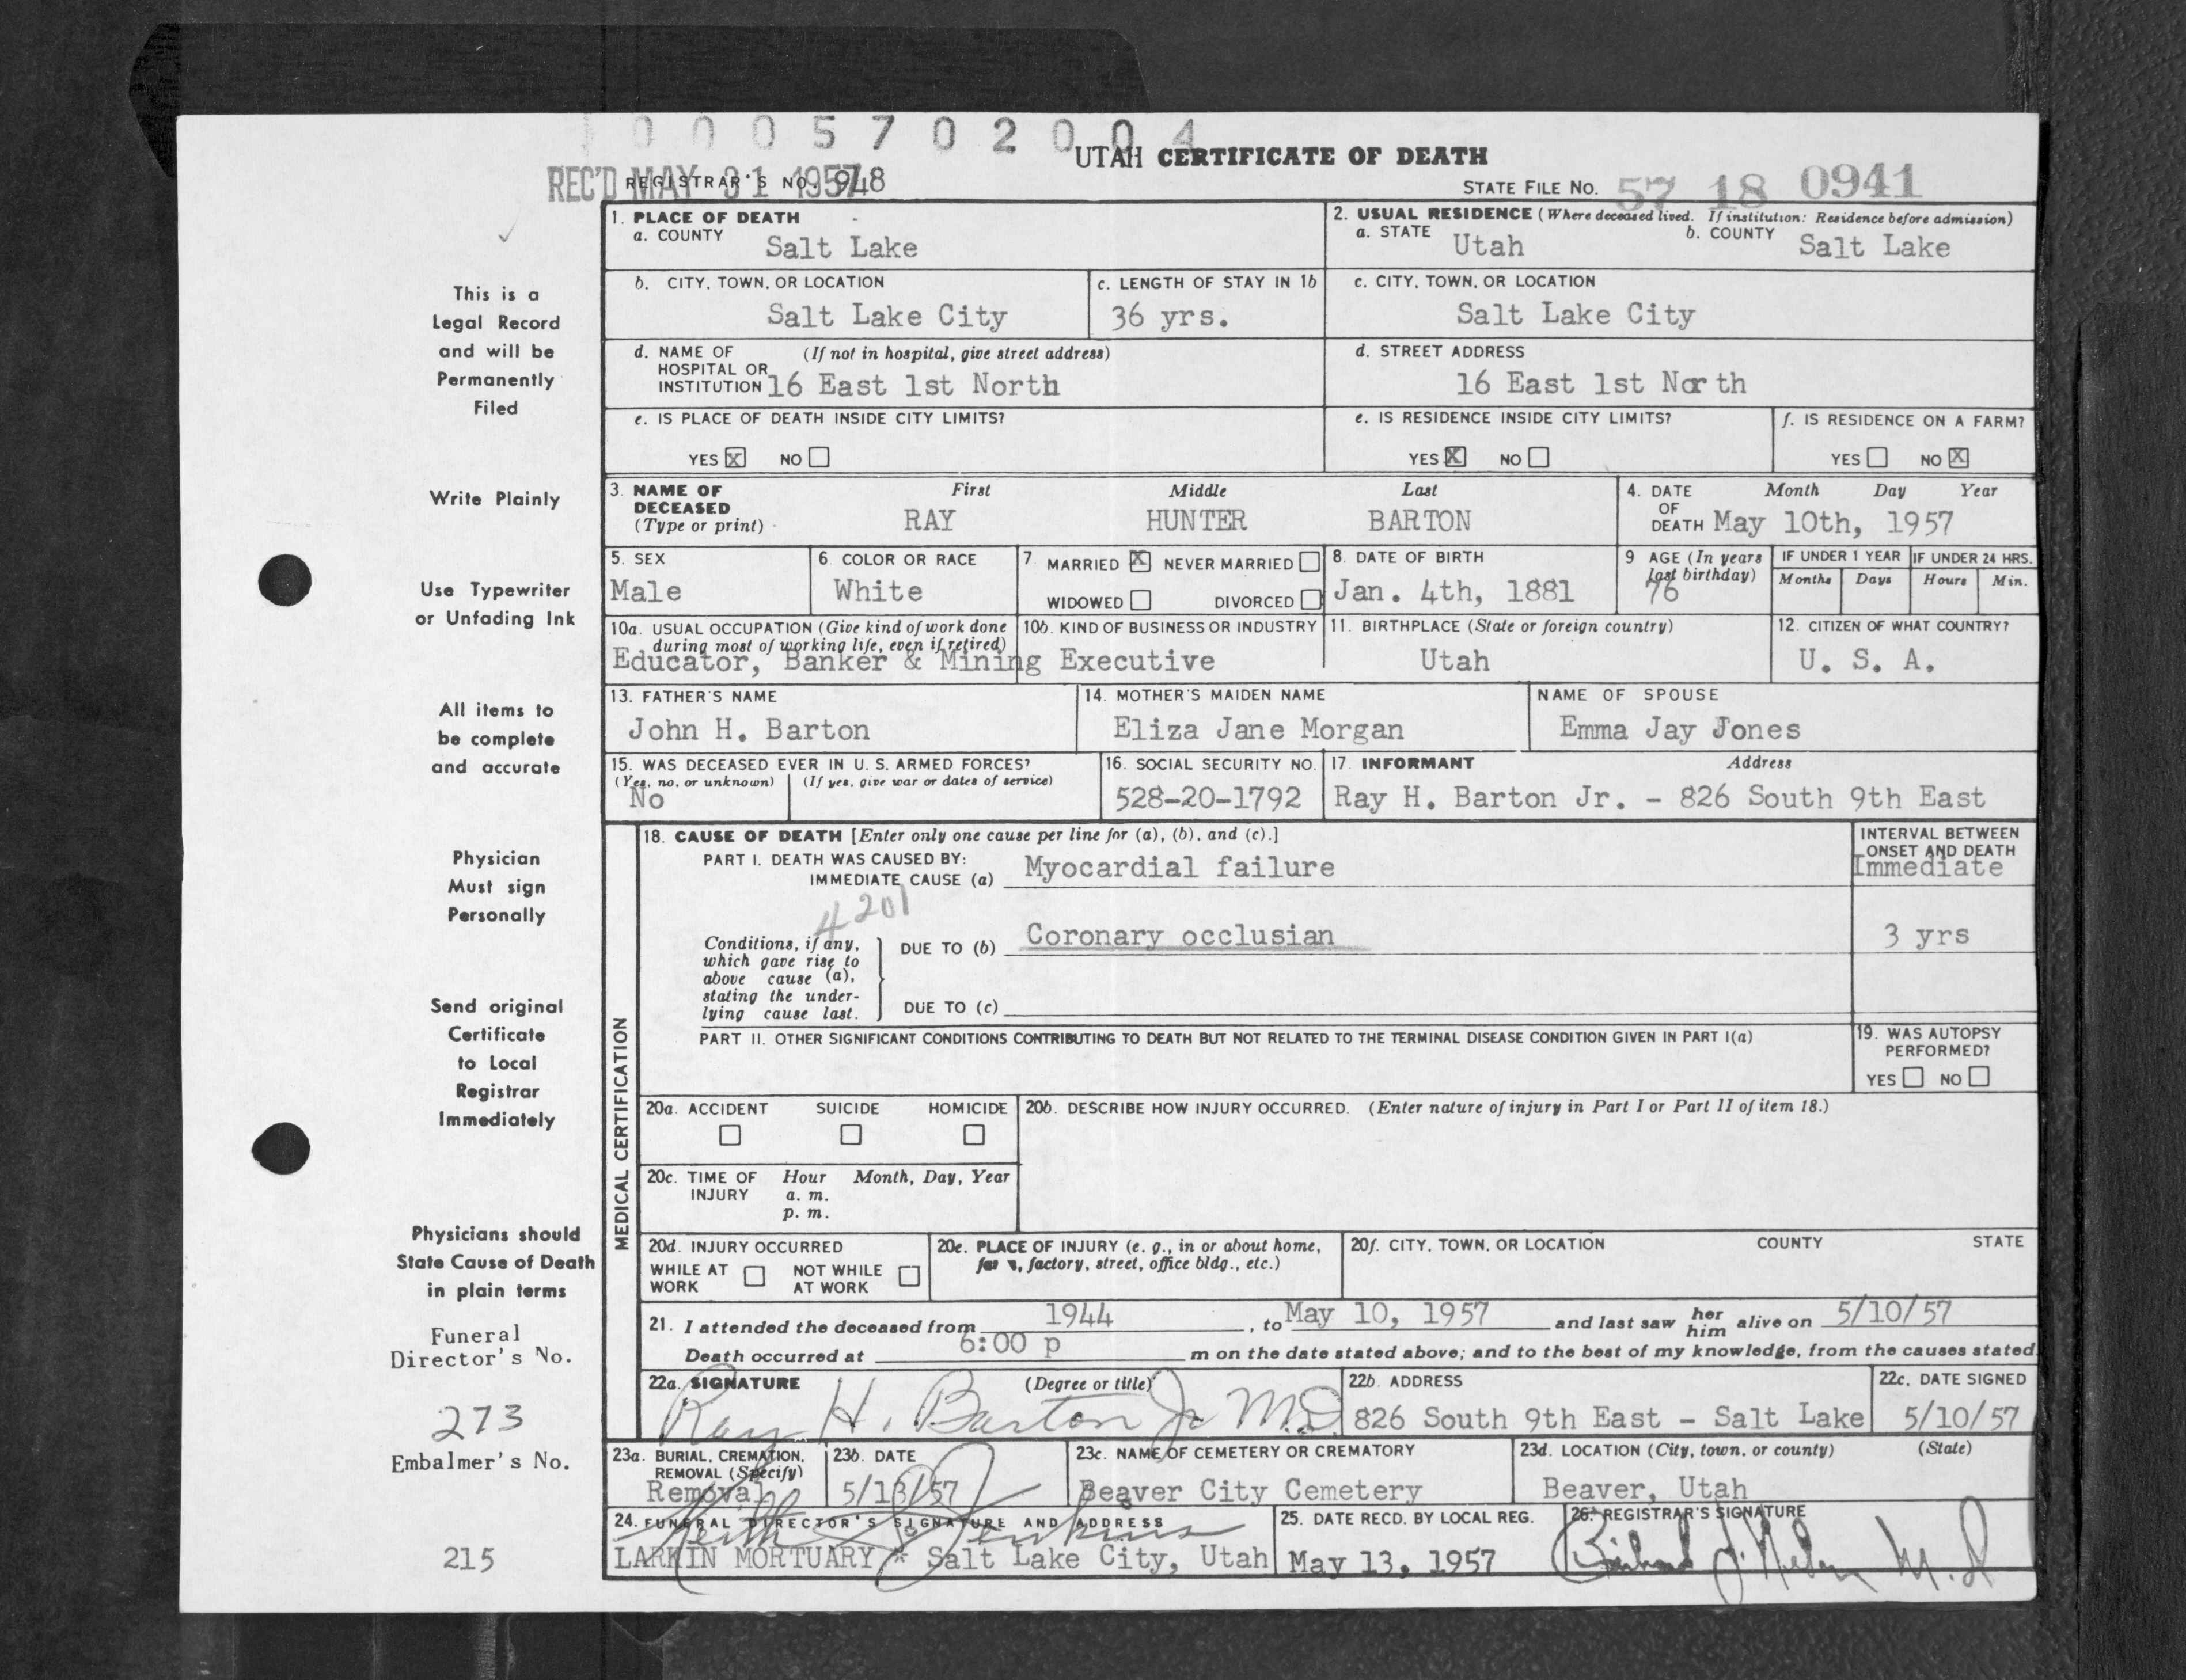 1 0 0 0 5 7 0 2 0 0 4
UTAH CERTIFICATE OF DEATH
REC'D MAY 31 1957
REGISTRAR'S NO. 948
STATE FILE NO. 57 18 0941
1. PLACE OF DEATH
a. COUNTY
Salt Lake
2. USUAL RESIDENCE (Where deceased lived. If institution: Residence before admission)
a. STATE Utah b. COUNTY Salt Lake
b. CITY, TOWN, OR LOCATION
Salt Lake City
c. LENGTH OF STAY IN 1b
36 yrs.
c. CITY, TOWN, OR LOCATION
Salt Lake City
d. NAME OF (If not in hospital, give street address)
HOSPITAL OR
INSTITUTION 16 East 1st North
d. STREET ADDRESS
16 East 1st North
e. IS PLACE OF DEATH INSIDE CITY LIMITS?
YES X NO
e. IS RESIDENCE INSIDE CITY LIMITS?
YES X NO
f. IS RESIDENCE ON A FARM?
YES NO X
3. NAME OF DECEASED (Type or print)
First Middle Last
RAY HUNTER BARTON
4. DATE OF DEATH
Month Day Year
May 10th, 1957
5. SEX
Male
6 COLOR OR RACE
White
7 MARRIED X NEVER MARRIED
WIDOWED DIVORCED
8. DATE OF BIRTH
Jan. 4th, 1881
9 AGE (In years
last birthday)
76
IF UNDER 1 YEAR
Months Days
IF UNDER 24 HRS.
Hours Min.
10a. USUAL OCCUPATION (Give kind of work done
during most of working life, even if retired)
10b. KIND OF BUSINESS OR INDUSTRY
Educator, Banker & Mining Executive
11. BIRTHPLACE (State or foreign country)
Utah
12. CITIZEN OF WHAT COUNTRY?
U. S. A.
13. FATHER'S NAME
John H. Barton
14. MOTHER'S MAIDEN NAME
Eliza Jane Morgan
NAME OF SPOUSE
Emma Jay Jones
15. WAS DECEASED EVER IN U. S. ARMED FORCES?
(Yes, no, or unknown) (If yes, give war or dates of service)
No
16. SOCIAL SECURITY NO.
528-20-1792
17. INFORMANT Address
Ray H. Barton Jr. - 826 South 9th East
MEDICAL CERTIFICATION
18. CAUSE OF DEATH [Enter only one cause per line for (a), (b), and (c).]
PART I. DEATH WAS CAUSED BY:
IMMEDIATE CAUSE (a) Myocardial failure
INTERVAL BETWEEN
ONSET AND DEATH
Immediate
4201
Conditions, if any,
which gave rise to
above cause (a),
stating the under-
lying cause last.
DUE TO (b) Coronary occlusian
3 yrs
DUE TO (c)
PART II. OTHER SIGNIFICANT CONDITIONS CONTRIBUTING TO DEATH BUT NOT RELATED TO THE TERMINAL DISEASE CONDITION GIVEN IN PART I(a)
19. WAS AUTOPSY
PERFORMED?
YES NO
20a. ACCIDENT SUICIDE HOMICIDE
20b. DESCRIBE HOW INJURY OCCURRED. (Enter nature of injury in Part I or Part II of item 18.)
20c. TIME OF INJURY
Hour Month, Day, Year
a. m.
p. m.
20d. INJURY OCCURRED
WHILE AT WORK NOT WHILE AT WORK
20e. PLACE OF INJURY (e. g., in or about home,
farm, factory, street, office bldg., etc.)
20f. CITY, TOWN, OR LOCATION COUNTY STATE
21. I attended the deceased from 1944, to May 10, 1957 and last saw her him alive on 5/10/57
Death occurred at 6:00 p m on the date stated above; and to the best of my knowledge, from the causes stated
22a. SIGNATURE (Degree or title)
Ray H. Barton Jr M.D
22b. ADDRESS
826 South 9th East - Salt Lake
22c. DATE SIGNED
5/10/57
23a. BURIAL, CREMATION,
REMOVAL (Specify)
Removal
23b. DATE
5/13/57
23c. NAME OF CEMETERY OR CREMATORY
Beaver City Cemetery
23d. LOCATION (City, town, or county) (State)
Beaver, Utah
24. FUNERAL DIRECTOR'S SIGNATURE AND ADDRESS
Keith Jenkins
LARKIN MORTUARY * Salt Lake City, Utah
25. DATE RECD. BY LOCAL REG.
May 13, 1957
26. REGISTRAR'S SIGNATURE
M. D
This is a
Legal Record
and will be
Permanently
Filed
Write Plainly
Use Typewriter
or Unfading Ink
All items to
be complete
and accurate
Physician
Must sign
Personally
Send original
Certificate
to Local
Registrar
Immediately
Physicians should
State Cause of Death
in plain terms
Funeral
Director's No.
273
Embalmer's No.
215